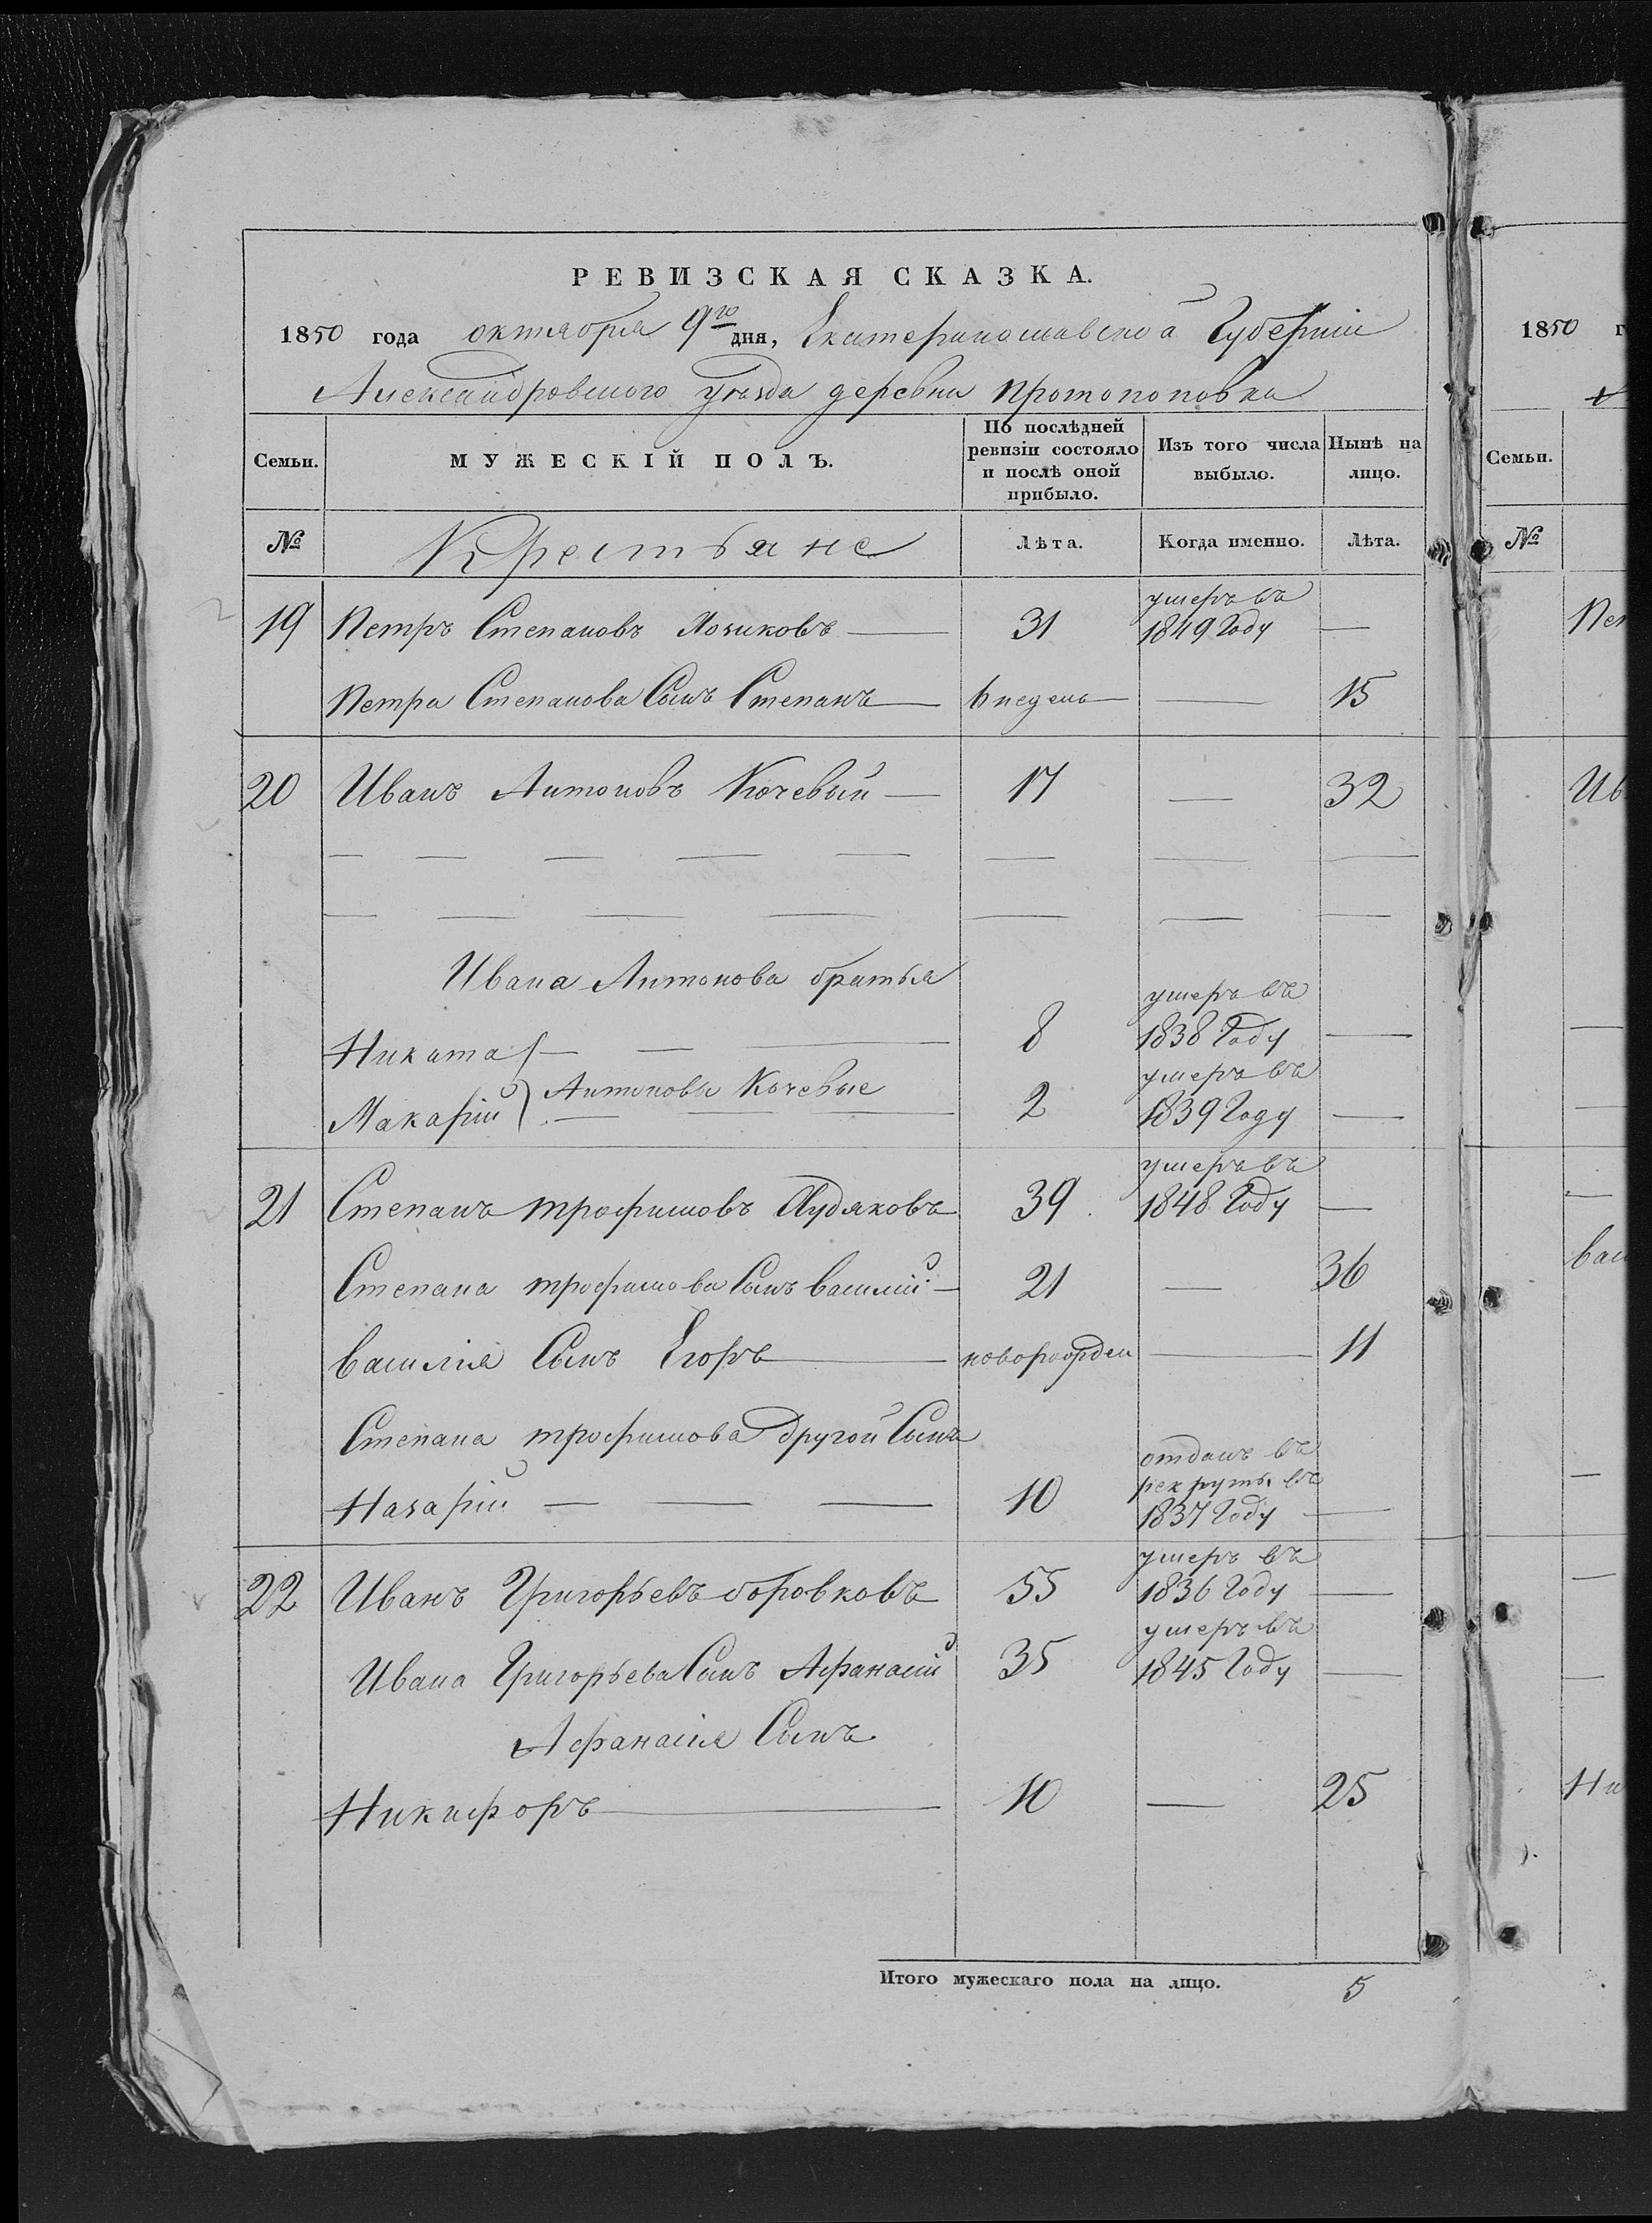 РЕВИЗСКАЯ СКАЗКА.
1850 года октября 9го дня, Екатеринославской Губерніи
Александровского уѣзда деревни Протопоповки
Семьи. МУЖЕСКІЙ ПОЛЪ. По послѣдней ревизіи состояло и послѣ оной прибыло. Изъ того числа выбыло. Нынѣ на лицо.
№ Крестьяне Лѣта. Когда именно. Лѣта.
19 Петръ Степановъ 31 умеръ въ 1849 Году —
Петра Степанова Сынъ Степанъ — 6 недель — 15
20 Иванъ Антоновъ Кочевый — 17 — 32
Ивана Антонова братья
Никита — 8 умеръ въ 1838 Году —
Макарій } Антоновы Кочевые 2 умеръ въ 1839 Году —
21 Степанъ трофимовъ Худяковъ 39 умеръ въ 1848 Году —
Степана трофимова Сынъ василій — 21 — 36
василія Сынъ Егоръ — новорожден — 11
Степана трофимова другой Сынъ
Назарій — 10 отданъ въ рекруты въ 1837 Году —
22 Иванъ Григорьевъ боровковъ 55 умеръ въ 1836 Году —
Ивана Григорьева Сынъ Афанасій 35 умеръ въ 1845 Году —
Афанасія Сынъ
Никифоръ — 10 — 25
Итого мужескаго пола на лицо. 5
1850 г
Семьи.
№
Пет
Ив
вас
Ни